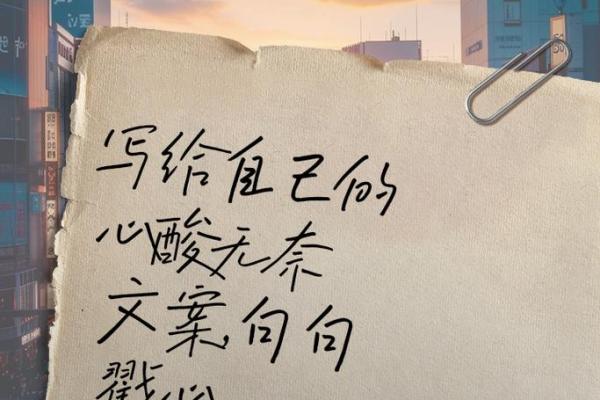 写给自己的
心酸无奈
文案,句句
戳心